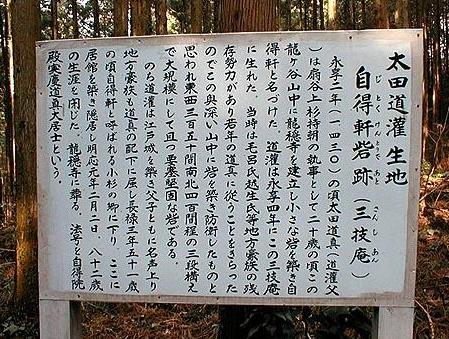 太田道灌生地
自得軒砦跡(三枝庵)
じとくけんとりであと
さんしあん
永享二年(一四三〇)の頃太田道真(道灌父
)は扇谷上杉持朝の執事として二十歳の頃この
龍ヶ谷山中に龍穏寺を建立し小さな砦を築き自
得軒と名づけた。道灌は永享四年にこの三枝庵
に生れた。当時は毛呂氏越生氏等地方豪族の残
存勢力があり若年の道真に従うことをきらった
のでこの奥深い山中に砦を築き防衛したものと
思われ東西三百五十間南北四百間程の三段構え
で大規模にして且つ要害堅固な砦である。
のち道灌は江戸城を築き父子ともに名声上り
地方豪族も道真の配下に屈し長禄三年五十一歳
の頃自得軒と呼ばれる小杉の郷に下り、ここに
居館を築き隠居し明応元年二月二日、八十二歳
の生涯を閉じた。龍穏寺に葬る。法号を自得院
殿実慶道真大居士という。